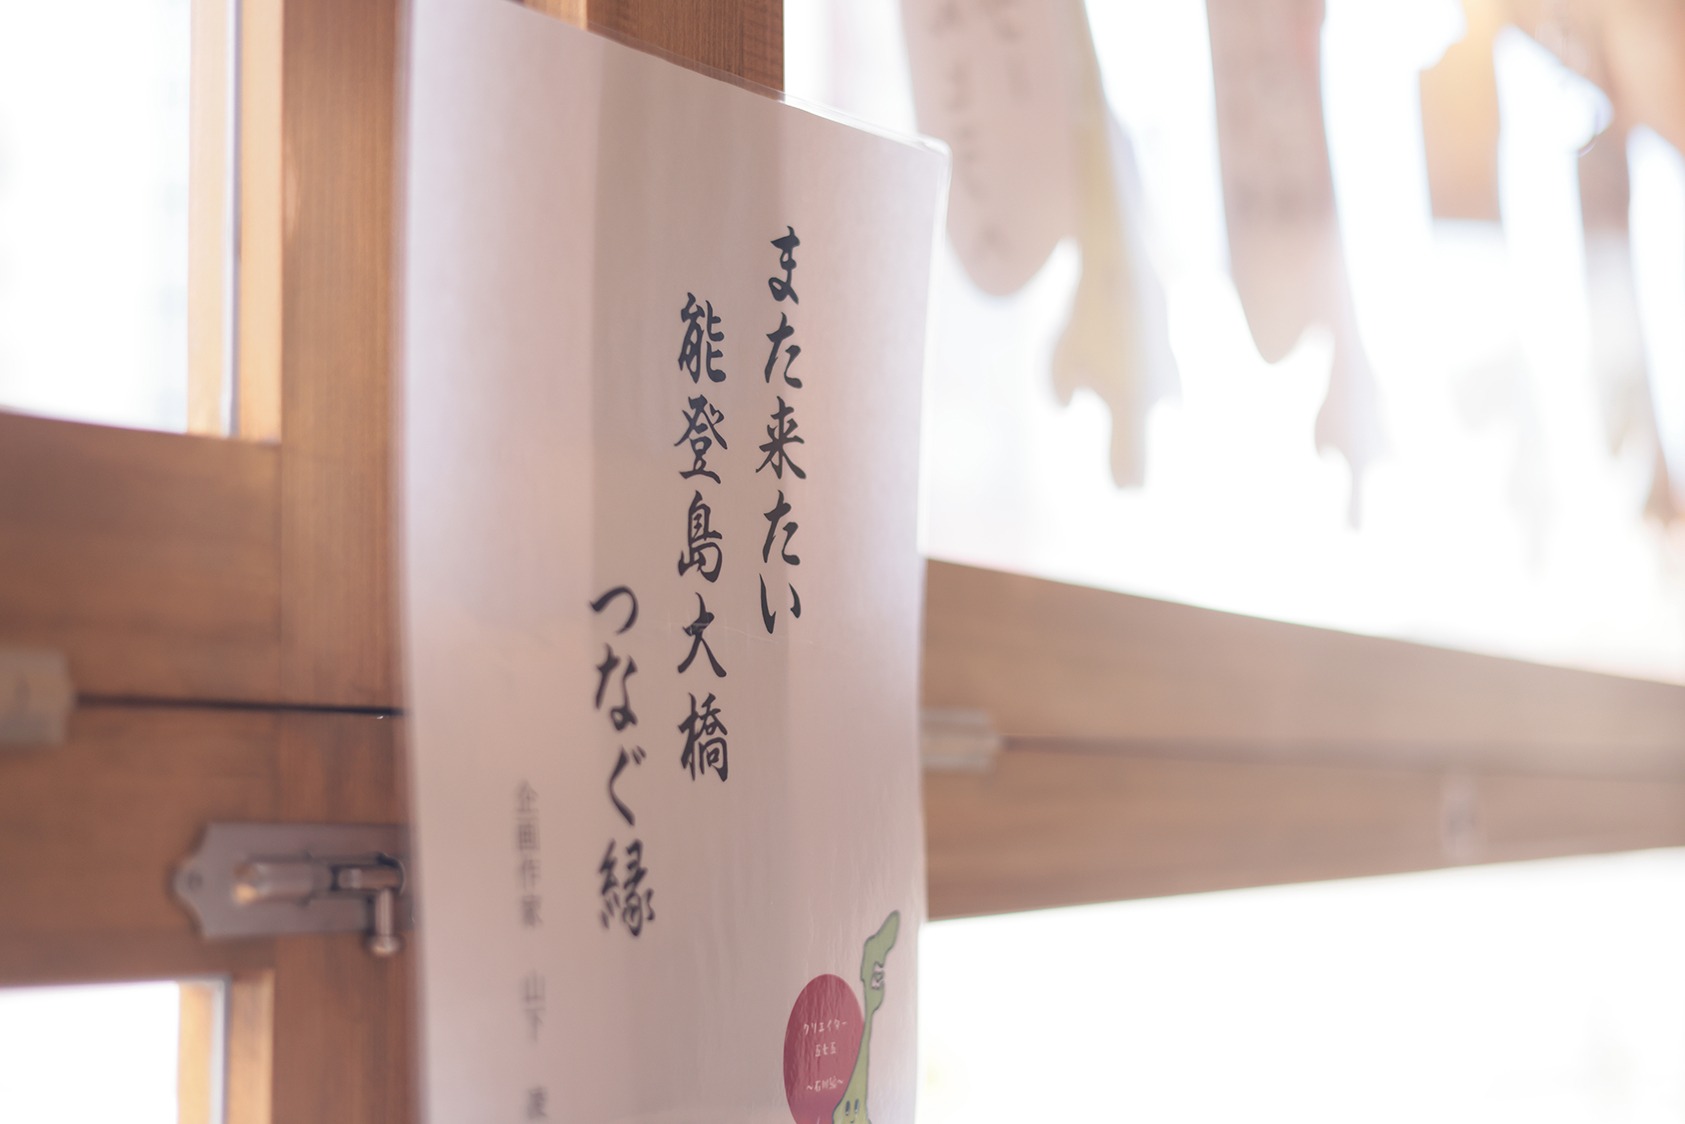 また来たい
能登島大橋
つなぐ縁
企画作家 山下
クリエイター
五七五
～石川編～